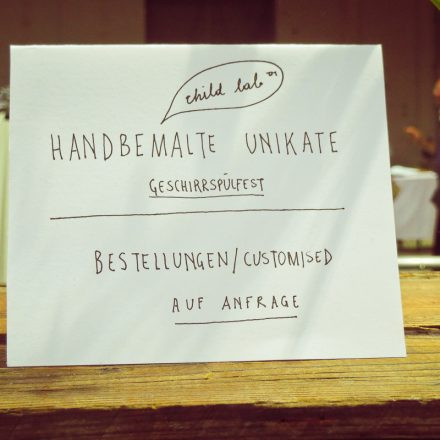 child lab 01
HANDBEMALTE UNIKATE
GESCHIRRSPÜLFEST
BESTELLUNGEN/CUSTOMISED
AUF ANFRAGE